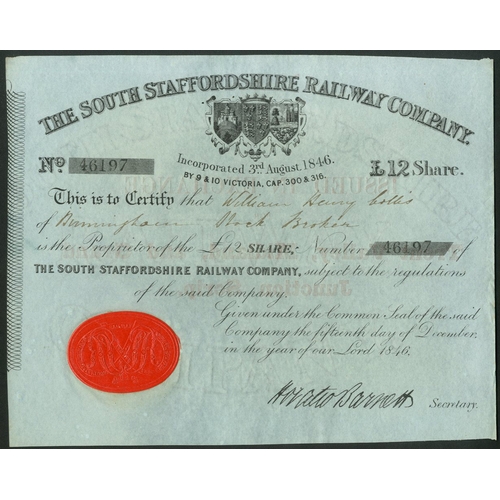 THE SOUTH STAFFORDSHIRE RAILWAY COMPANY.
Incorporated 3rd August, 1846.
BY 9 & 10 VICTORIA, CAP. 300 & 316.
No 46197 £12 Share.
This is to Certify that William Henry Collis
of Birmingham Stock Broker
is the Proprietor of the £12 SHARE, Number 46197 of
THE SOUTH STAFFORDSHIRE RAILWAY COMPANY, subject to the regulations
of the said Company.
Given under the Common Seal of the said
Company the fifteenth day of December,
in the year of our Lord 1846.
Horatio Barnett Secretary.